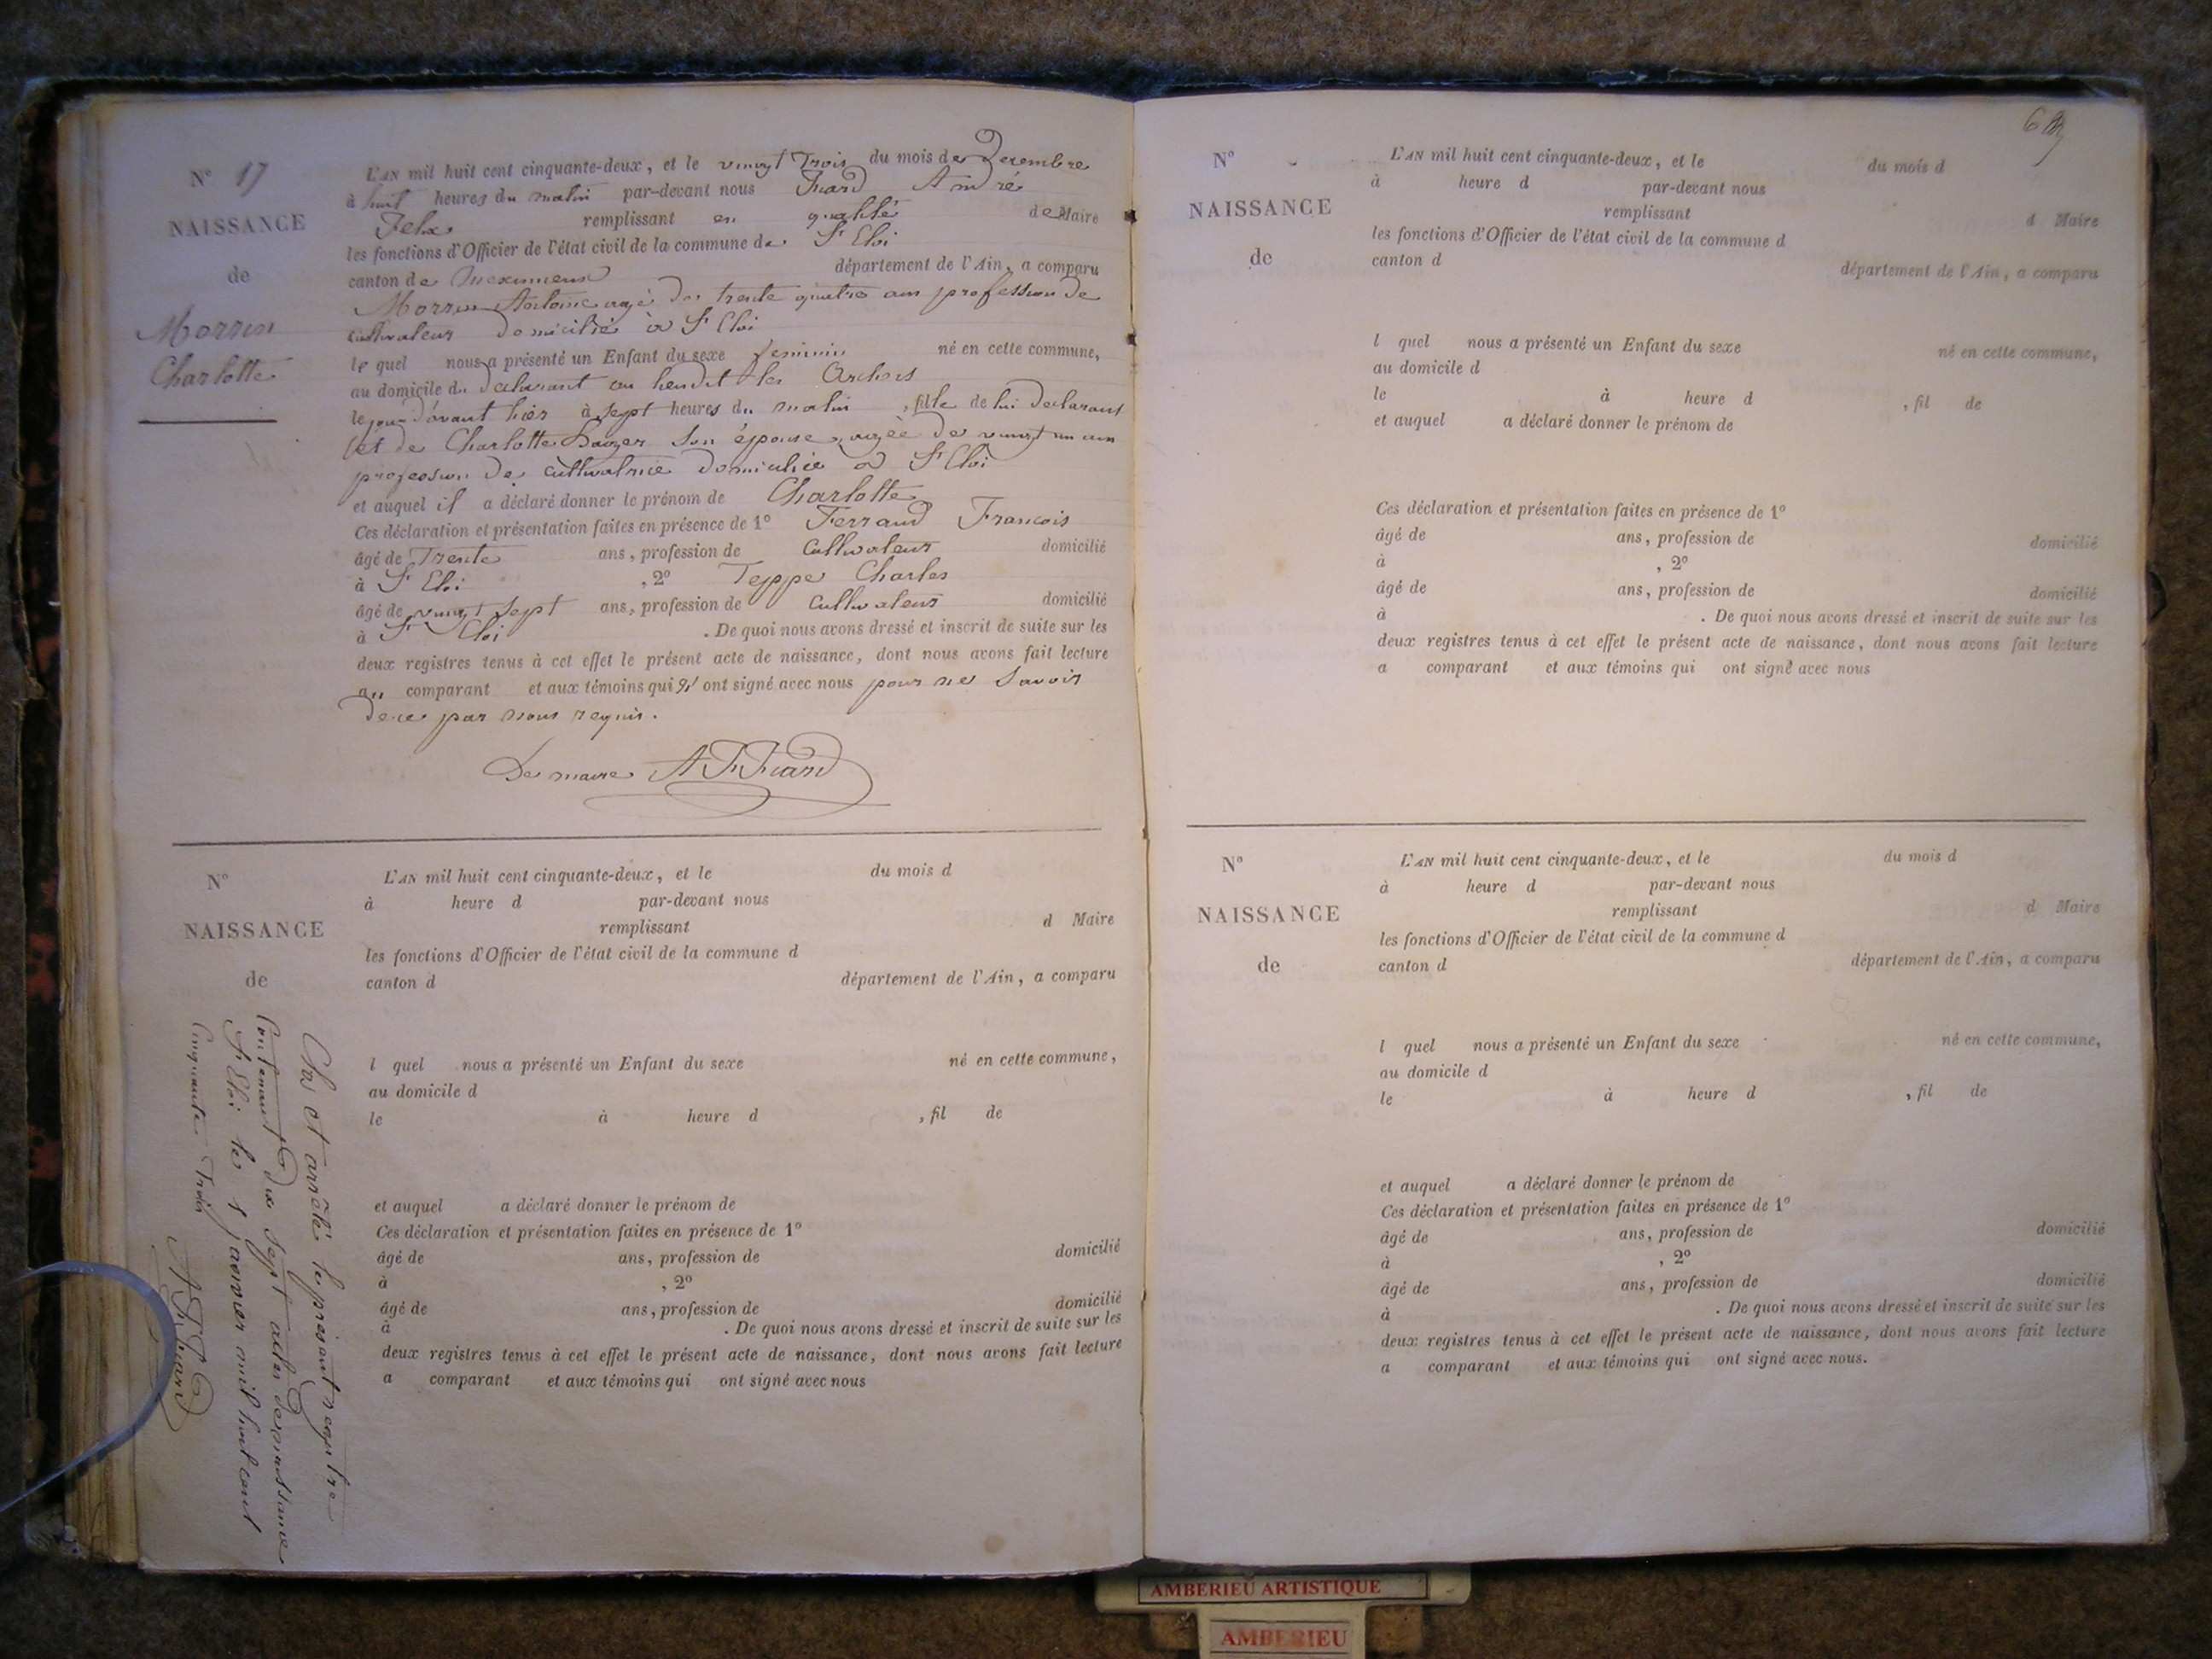 N° 17
NAISSANCE
de
Morrin
Charlotte
L'AN mil huit cent cinquante-deux, et le vingt Trois du mois de Decembre
à huit heures du matin par-devant nous André
Felix remplissant en qualité de Maire
les fonctions d'Officier de l'état civil de la commune de St Eloi
canton de Meximieux département de l'Ain, a comparu
Morrin Antoine agé de trente quatre ans profession de
cultivateur domicilié à St Eloi
le quel nous a présenté un Enfant du sexe feminin né en cette commune,
au domicile du declarant au lieudit les
le jour d'avant hier à sept heures du matin, fille de lui declarant
et de Charlotte son épouse, agée de vingt un ans
profession de cultivatrice domiciliée à St Eloi
et auquel il a déclaré donner le prénom de Charlotte
Ces déclaration et présentation faites en présence de 1° Ferrand Francois
âgé de Trente ans, profession de Cultivateur domicilié
à St Eloi, 2° Teppe Charles
âgé de vingt Sept ans, profession de Cultivateur domicilié
à St Eloi. De quoi nous avons dressé et inscrit de suite sur les
deux registres tenus à cet effet le présent acte de naissance, dont nous avons fait lecture
au comparant et aux témoins qui n' ont signé avec nous pour ne Savoir
de ce par nous requis.
Le maire
N°
NAISSANCE
de
L'AN mil huit cent cinquante-deux, et le du mois d
à heure d par-devant nous
remplissant d Maire
les fonctions d'Officier de l'état civil de la commune d
canton d département de l'Ain, a comparu
l quel nous a présenté un Enfant du sexe né en cette commune,
au domicile d
le à heure d , fil de
et auquel a déclaré donner le prénom de
Ces déclaration et présentation faites en présence de 1°
âgé de ans, profession de domicilié
à , 2°
âgé de ans, profession de domicilié
à . De quoi nous avons dressé et inscrit de suite sur les
deux registres tenus à cet effet le présent acte de naissance, dont nous avons fait lecture
a comparant et aux témoins qui ont signé avec nous
Clos et arrêté le présent registre
Contenant dix Sept actes de naissance
St Eloi le 1 janvier mil huit cent
Cinquante Trois
N°
NAISSANCE
de
L'AN mil huit cent cinquante-deux, et le du mois d
à heure d par-devant nous
remplissant d Maire
les fonctions d'Officier de l'état civil de la commune d
canton d département de l'Ain, a comparu
l quel nous a présenté un Enfant du sexe né en cette commune,
au domicile d
le à heure d , fil de
et auquel a déclaré donner le prénom de
Ces déclaration et présentation faites en présence de 1°
âgé de ans, profession de domicilié
à , 2°
âgé de ans, profession de domicilié
à . De quoi nous avons dressé et inscrit de suite sur les
deux registres tenus à cet effet le présent acte de naissance, dont nous avons fait lecture
a comparant et aux témoins qui ont signé avec nous
N°
NAISSANCE
de
L'AN mil huit cent cinquante-deux, et le du mois d
à heure d par-devant nous
remplissant d Maire
les fonctions d'Officier de l'état civil de la commune d
canton d département de l'Ain, a comparu
l quel nous a présenté un Enfant du sexe né en cette commune,
au domicile d
le à heure d , fil de
et auquel a déclaré donner le prénom de
Ces déclaration et présentation faites en présence de 1°
âgé de ans, profession de domicilié
à , 2°
âgé de ans, profession de domicilié
à . De quoi nous avons dressé et inscrit de suite sur les
deux registres tenus à cet effet le présent acte de naissance, dont nous avons fait lecture
a comparant et aux témoins qui ont signé avec nous.
AMBERIEU ARTISTIQUE
AMBERIEU